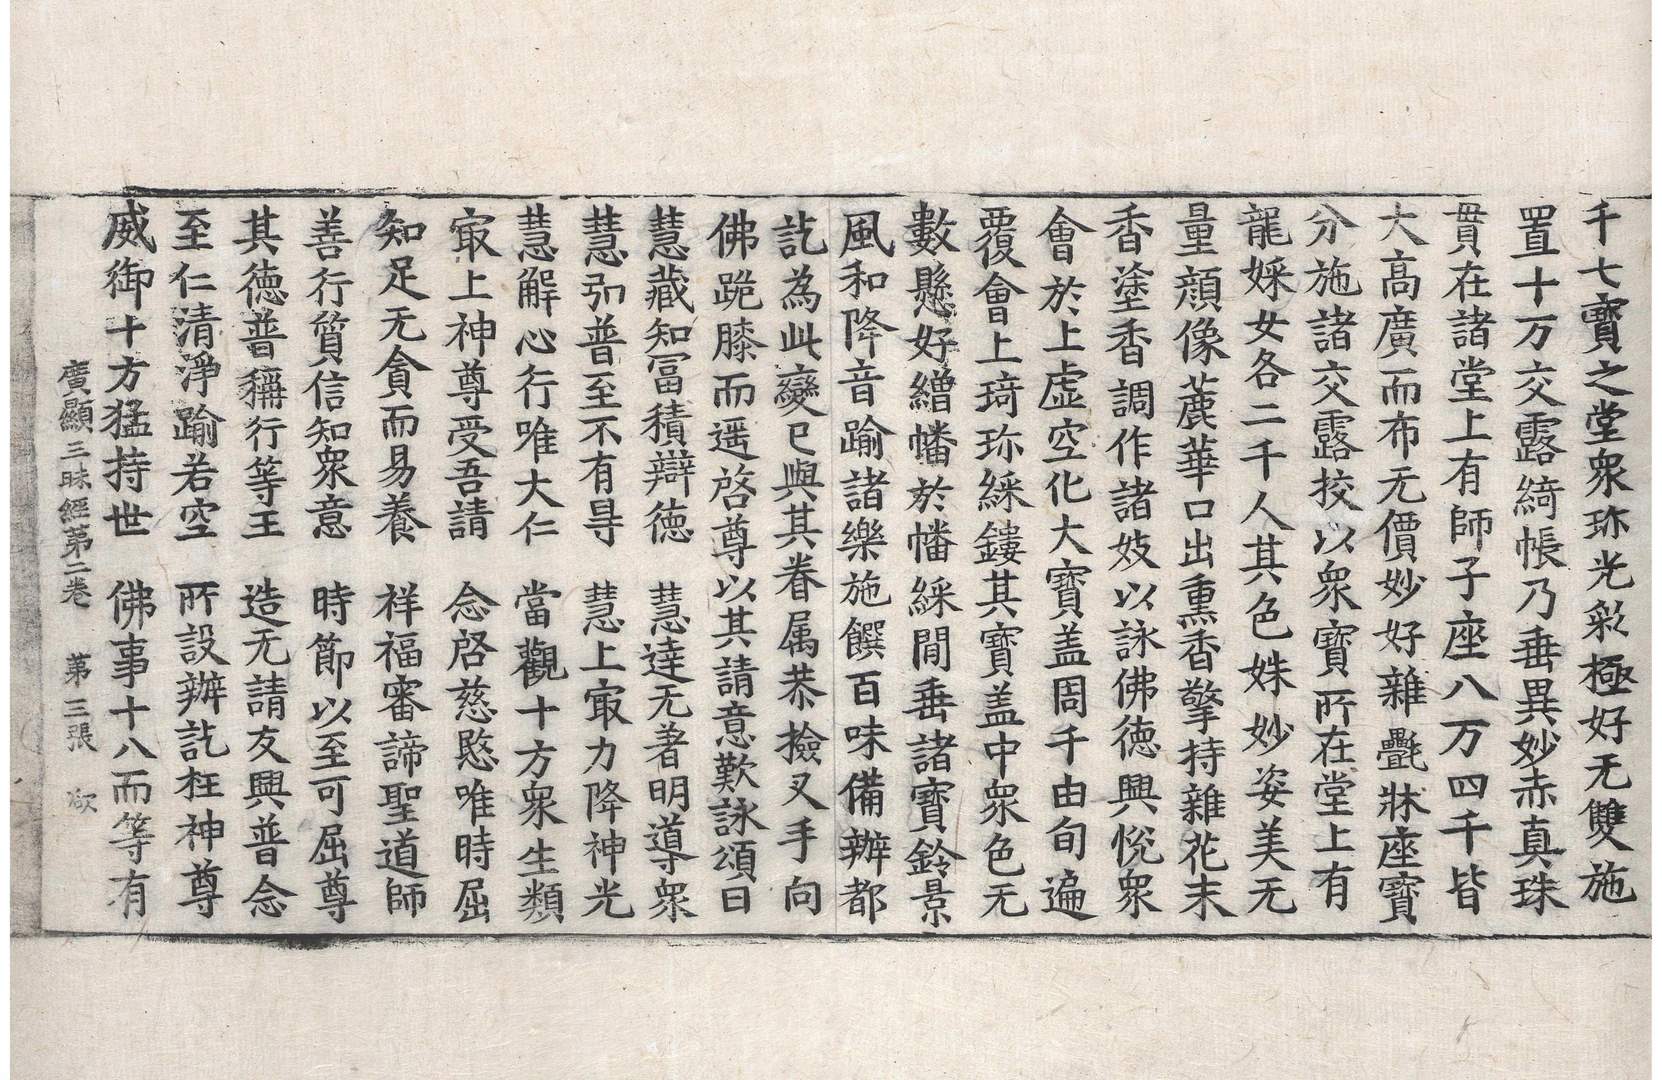 千七寶之堂衆珎光彩極好无雙施
置十万交露綺帳乃垂異妙赤真珠
貫在諸堂上有師子座八万四千皆
大高廣而布无價妙好雜㲲牀座寶
分施諸交露挍以衆寶所在堂上有
龍婇女各二千人其色姝妙姿美无
量顔像蘼華口出熏香擎持雜花末
香塗香調作諸妓以詠佛德興恱衆
會於上虛空化大寶盖周千由旬遍
覆會上琦珎綵鏤其寶盖中衆色无
數懸好繒幡於幡綵間垂諸寶鈴景
風和降音踰諸樂施饌百味備辦都
訖為此變已與其眷属恭撿叉手向
佛跪膝而遥啓尊以其請意歎詠頌曰
慧藏知冨積辯德　慧達无著明導衆
慧弘普至不有㝵　慧上㝡力降神光
慧解心行唯大仁　當觀十方衆生類
㝡上神尊受吾請　念啓慈愍唯時屈
知足无貪而易養　祥福審諦聖道師
善行質信知衆意　時節以至可屈尊
其德普稱行等王　造无請友興普念
至仁清淨踰若空　所設辦訖枉神尊
威御十方猛持世　佛事十八而等有
廣顯三昧經苐二卷　苐三張　欲